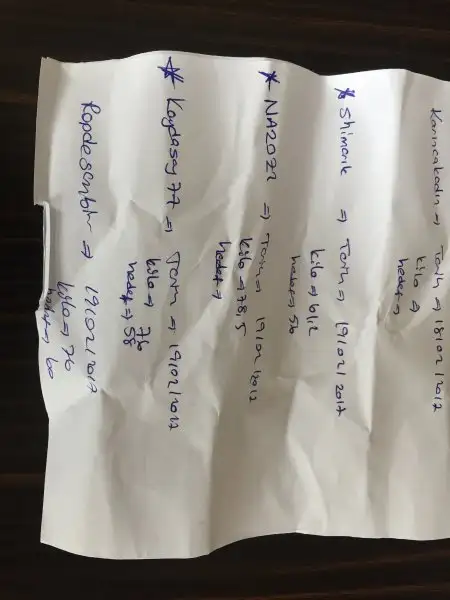 Karıncakadın → Tarih → 18/02/2017
kilo →
hedef →
* Shimarik ⇒ Tarih ⇒ 19/02/2017
kilo ⇒ 61,2
hedef ⇒ 56
* NA2022 ⇒ Tarih ⇒ 19/02/2017
kilo ⇒ 78,5
hedef ⇒
* Kaydasay77 ⇒ Tarih ⇒ 19/02/2017
kilo ⇒ 76
hedef ⇒ 58
⇒ 19/02/2017
kilo ⇒ 76
hedef ⇒ 60